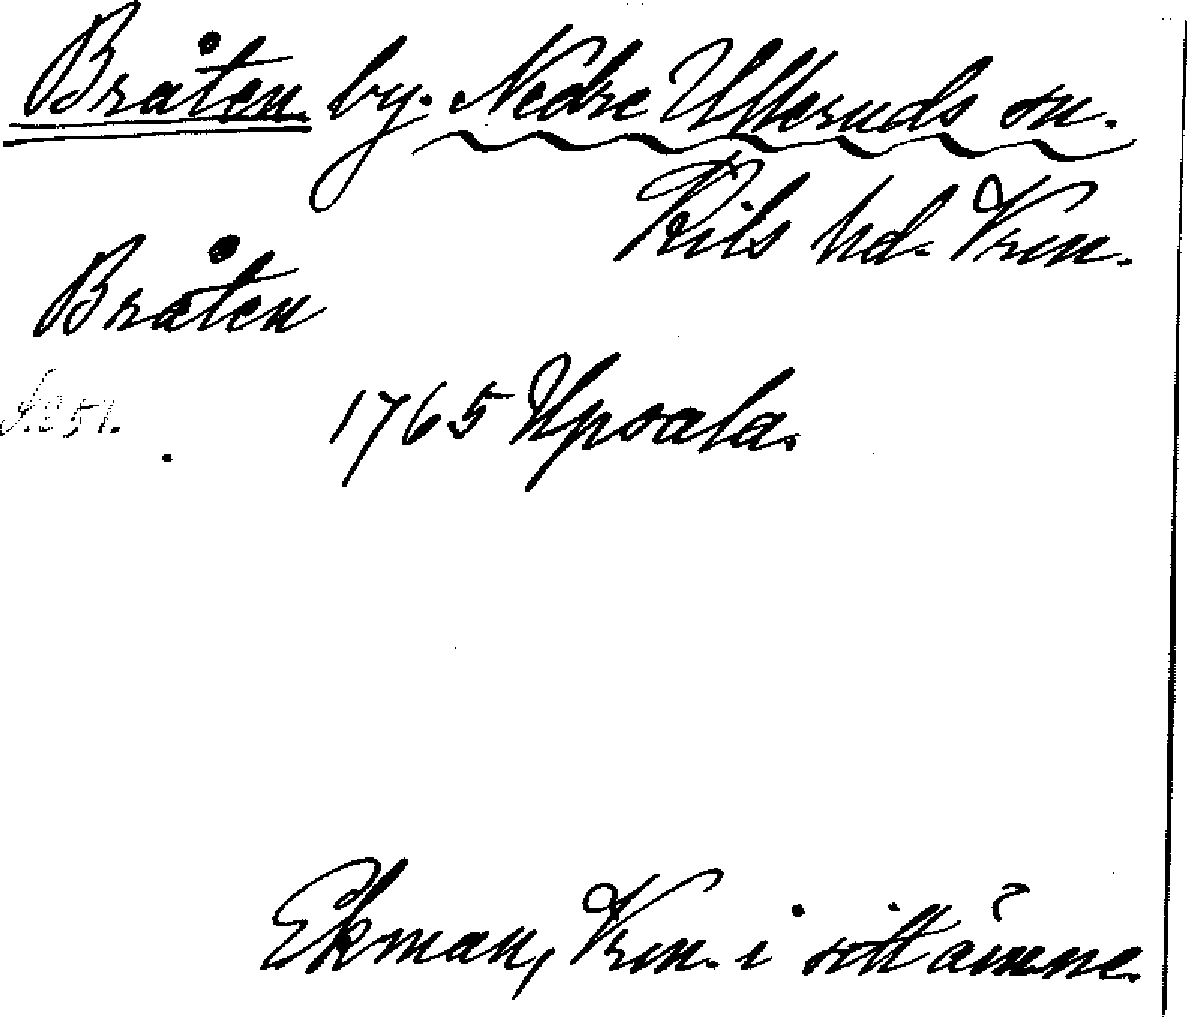 Bråten by. Nedre Ulleruds sn.
Kils hd. Vrm.
Bråten
1765 Upsala.
Ekman, Vrm. i sitt ämne.